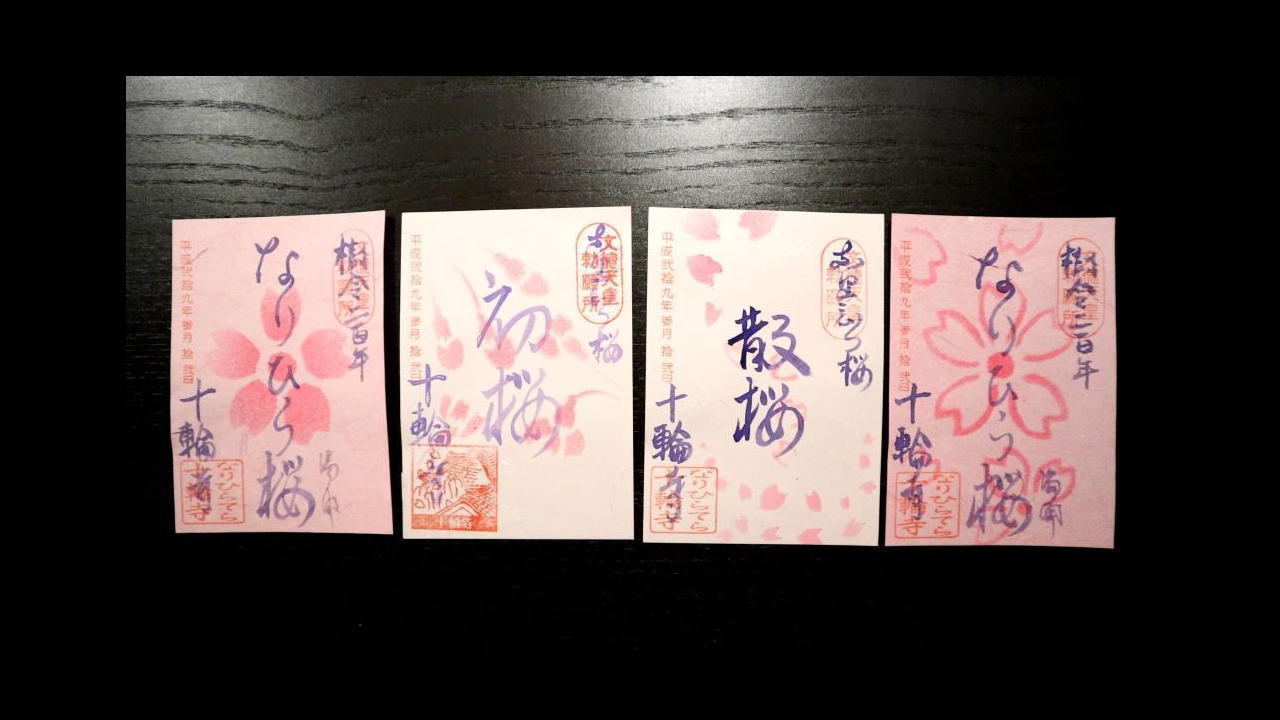 樹令二百年
なりひら桜
平成弐拾九年参月拾弐日
十輪寺
なりひらでら
十輪寺
文徳天皇
勅願所
初桜
平成弐拾九年参月拾弐日
十輪寺
十輪寺
なりひら桜
散桜
平成弐拾九年参月拾弐日
十輪寺
なりひらでら
十輪寺
樹令二百年
なりひら桜
平成弐拾九年参月拾弐日
十輪寺
なりひらでら
十輪寺